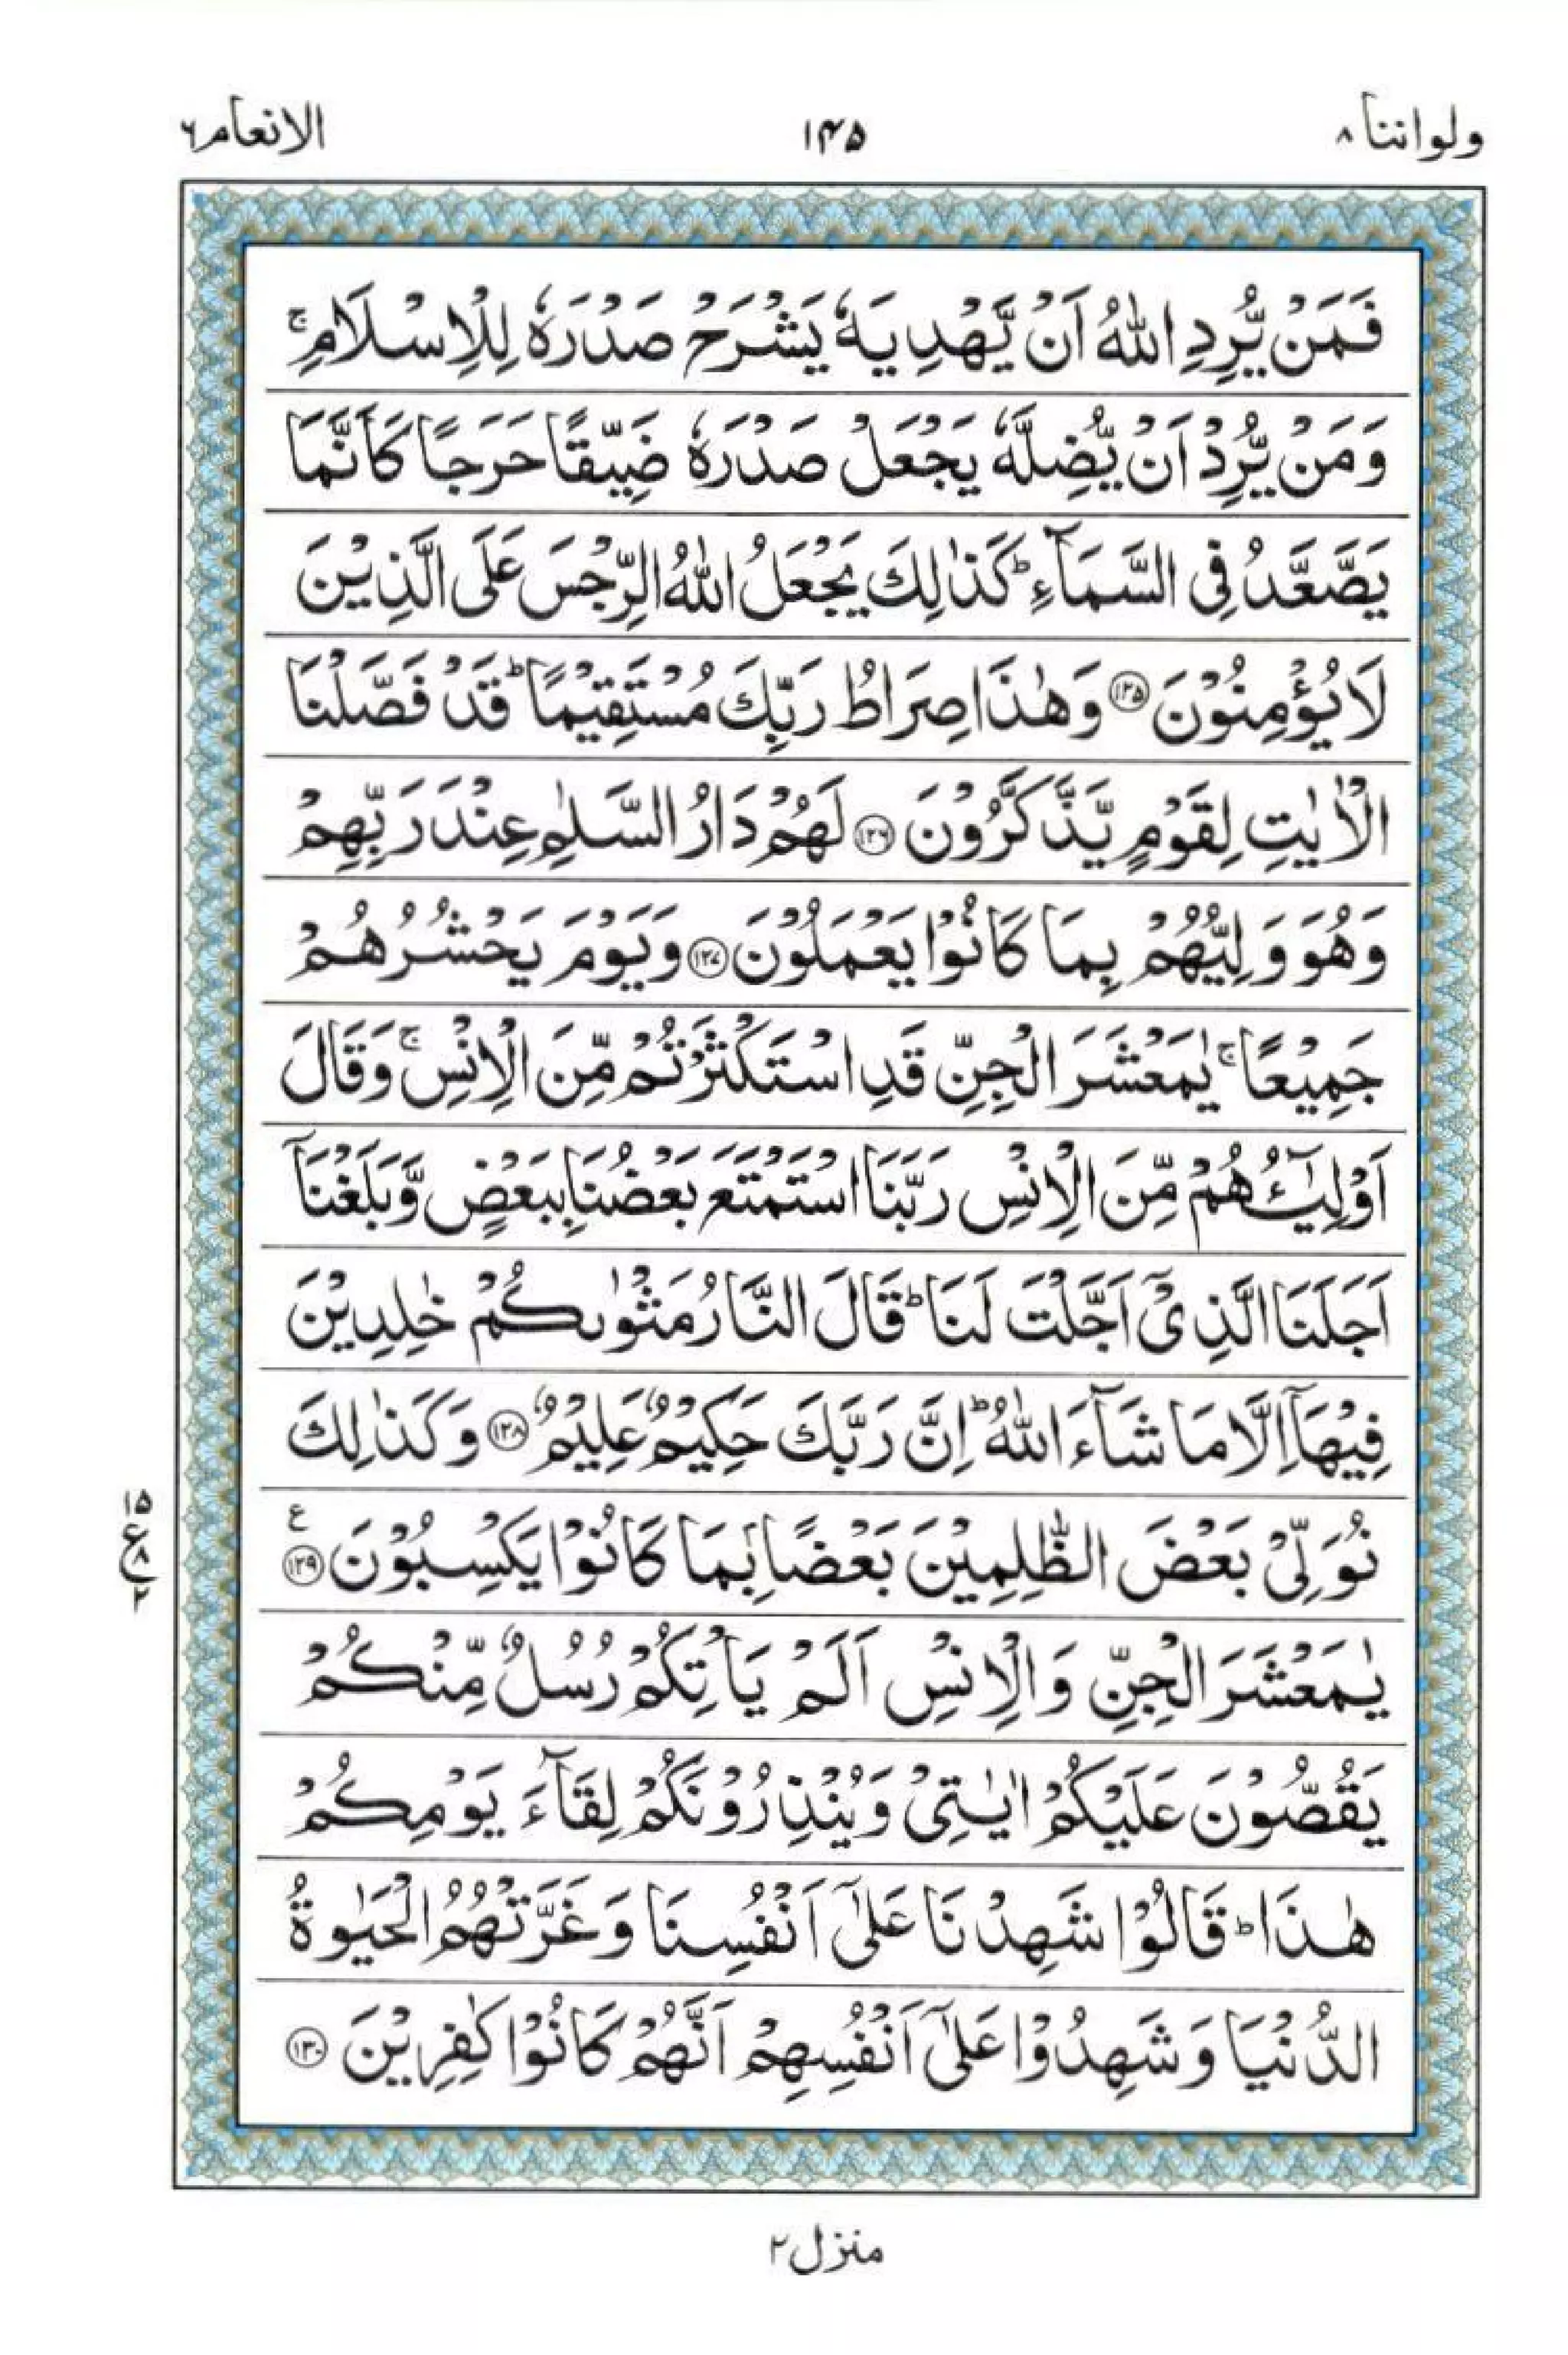 ولواننا ٨
١٤٥
الانعام ٦
فَمَنْ يُّرِدِ اللّٰهُ اَنْ يَّهْدِيَهٗ يَشْرَحْ صَدْرَهٗ لِلْاِسْلَامِ ۚ
وَمَنْ يُّرِدْ اَنْ يُّضِلَّهٗ يَجْعَلْ صَدْرَهٗ ضَيِّقًا حَرَجًا كَاَنَّمَا
يَصَّعَّدُ فِى السَّمَآءِ ؕ كَذٰلِكَ يَجْعَلُ اللّٰهُ الرِّجْسَ عَلَى الَّذِيْنَ
لَا يُؤْمِنُوْنَ ﴿١٢٥﴾ وَهٰذَا صِرَاطُ رَبِّكَ مُسْتَقِيْمًا ؕ قَدْ فَصَّلْنَا
الْاٰيٰتِ لِقَوْمٍ يَّذَّكَّرُوْنَ ﴿١٢٦﴾ لَهُمْ دَارُ السَّلٰمِ عِنْدَ رَبِّهِمْ
وَهُوَ وَلِيُّهُمْ بِمَا كَانُوْا يَعْمَلُوْنَ ﴿١٢٧﴾ وَيَوْمَ يَحْشُرُهُمْ
جَمِيْعًا ۚ يٰمَعْشَرَ الْجِنِّ قَدِ اسْتَكْثَرْتُمْ مِّنَ الْاِنْسِ ۚ وَقَالَ
اَوْلِيٰٓـُٔهُمْ مِّنَ الْاِنْسِ رَبَّنَا اسْتَمْتَعَ بَعْضُنَا بِبَعْضٍ وَّبَلَغْنَآ
اَجَلَنَا الَّذِىْٓ اَجَّلْتَ لَنَا ؕ قَالَ النَّارُ مَثْوٰىكُمْ خٰلِدِيْنَ
فِيْهَآ اِلَّا مَا شَآءَ اللّٰهُ ؕ اِنَّ رَبَّكَ حَكِيْمٌ عَلِيْمٌ ﴿١٢٨﴾ وَكَذٰلِكَ
نُوَلِّىْ بَعْضَ الظّٰلِمِيْنَ بَعْضًا بِمَا كَانُوْا يَكْسِبُوْنَ ﴿١٢٩﴾ ع
١٥
ع ٨
٢
يٰمَعْشَرَ الْجِنِّ وَالْاِنْسِ اَلَمْ يَاْتِكُمْ رُسُلٌ مِّنْكُمْ
يَقُصُّوْنَ عَلَيْكُمْ اٰيٰتِىْ وَيُنْذِرُوْنَكُمْ لِقَآءَ يَوْمِكُمْ
هٰذَا ؕ قَالُوْا شَهِدْنَا عَلٰٓى اَنْفُسِنَا وَغَرَّتْهُمُ الْحَيٰوةُ
الدُّنْيَا وَشَهِدُوْا عَلٰٓى اَنْفُسِهِمْ اَنَّهُمْ كَانُوْا كٰفِرِيْنَ ﴿١٣٠﴾
منزل ٢